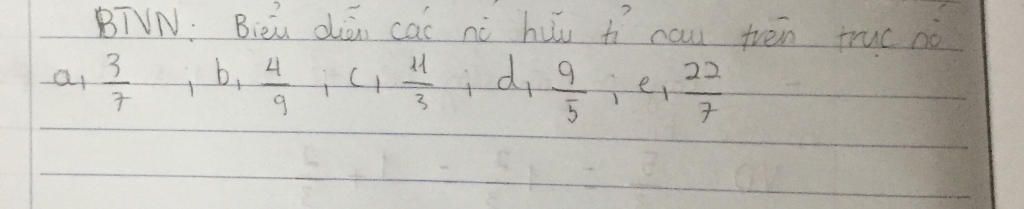 BTVN: Biểu diễn các số hữu tỉ sau trên trục số
a, 3/7 ; b, 4/9 ; c, 11/3 ; d, 9/5 ; e, 22/7